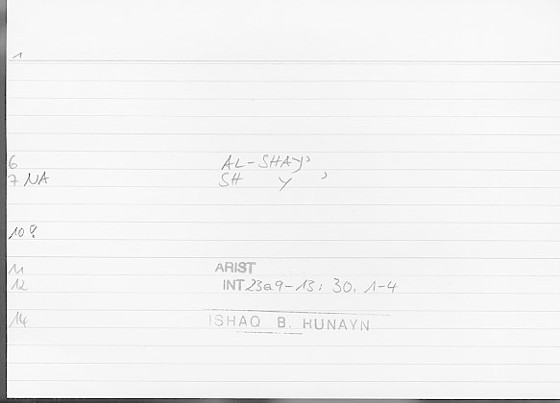 1
6 AL-SHAYʾ
7 NA SH Y ʾ
10 ?
11 ARIST
12 INT 23a9-13; 30, 1-4
14 ISHAQ B. HUNAYN